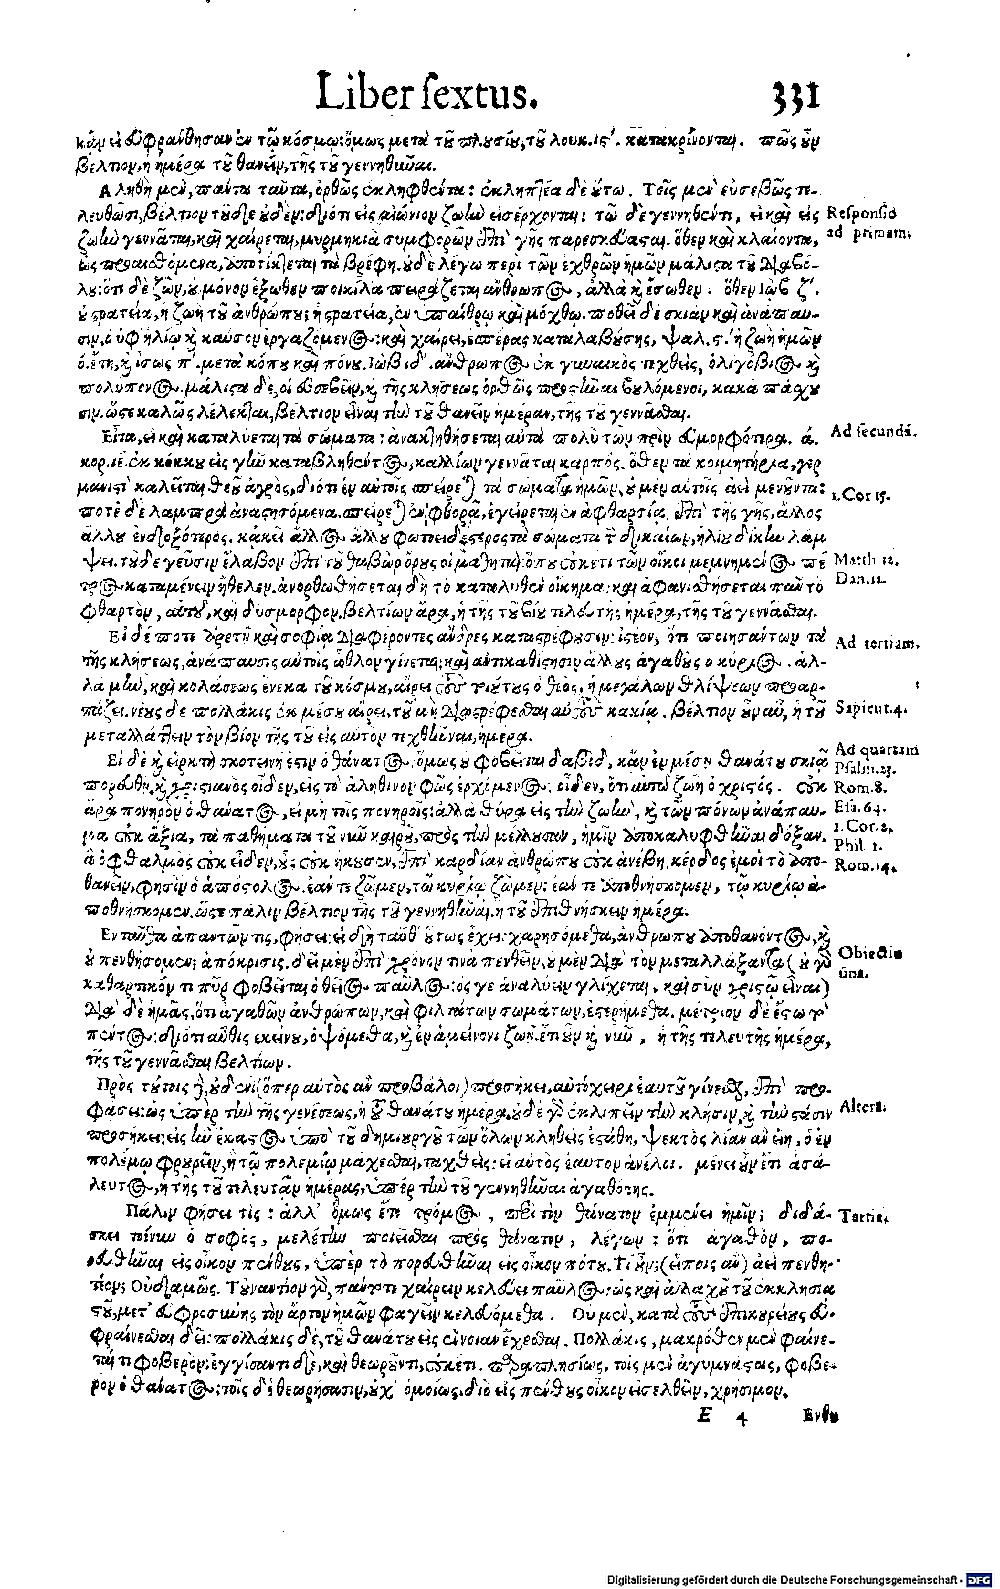 Liber sextus. 331
κἂν εἰ εὐφράνθησαν ἐν τῷ κόσμῳ: ὅμως μετὰ τοῦ πλουσίου, τοῦ λουκ. ις΄. κατακρίνονται. πῶς οὖν
βέλτιον, ἡ ἡμέρα τοῦ θανεῖν, τῆς τοῦ γεννηθῆναι.
Αληθῆ μὲν, πάντα ταῦτα, ὀρθῶς ἐκληφθέντα: ἐκληπτέα δὲ οὕτω. Τοῖς μὲν εὐσεβῶς τε-
λευθῶσι, βέλτιον τοῦδε οὐδέν: διότι εἰς αἰώνιον ζωὴν εἰσέρχονται: τῷ δὲ γεννηθέντι, εἰ καὶ εἰς
Responsio
ζωὴν γεννᾶται, καὶ χαίρεται, μυρμηκιὰ συμφορῶν ἐπὶ γῆς παρεσκεύασται. ὅθεν καὶ κλαίοντα,
ad primam.
ὡς προαισθόμενα, ἀποτίκτεται τὰ βρέφη. οὐδὲ λέγω περὶ τῶν ἐχθρῶν ἡμῶν μάλιστα τοῦ διαβό-
λου: ὅτι δὲ ζῶν, οὐ μόνον ἔξωθεν ποικίλα πειράζεται ἄνθρωπος, ἀλλὰ καὶ ἔσωθεν: ὅθεν ἰὼβ ζ΄.
οὐ στρατεία, ἡ ζωὴ τοῦ ἀνθρώπου; ἡ στρατεία, ἐν ὑπαίθρῳ καὶ μόχθῳ. ποθεῖ δὲ σκιὰν καὶ ἀνάπαυ-
σιν, ὁ ὑφ' ἡλίῳ καὶ καύσει ἐργαζόμενος: καὶ χαίρει, ἑσπέρας καταλαβούσης, ψαλ. ς΄. ἡ ζωὴ ἡμῶν
ο. ἔτη, καὶ ἴσως π΄. μετὰ κόπου καὶ πόνου. Ἰὼβ ιδ΄. ἄνθρωπος ἐκ γυναικὸς τεχθεὶς, ὀλιγόβιος καὶ
πολύπονος. μάλιστα δὲ, οἱ εὐσεβεῖν, καὶ τῆς κλήσεως ὀρθῶς προστῆναι βουλόμενοι, κακὰ πάσχου
σιν. ὥστε καλῶς λέλεκται, βέλτιον εἶναι τὴν τοῦ θανεῖν ἡμέραν, τῆς τοῦ γεννᾶσθαι.
Εἶτα, εἰ καὶ καταλύεται τὰ σώματα: ἀνακληθήσεται αὐτὰ πολὺ τῶν πρὶν εὐμορφότερα. ά.
Ad secundã.
κορ. ιέ. ἐκ κόκκου εἰς γῆν καταβληθέντος, καλλίων γεννᾶται καρπός. ὅθεν τὰ κοιμητήρια, γερ
μανιστὶ καλεῖται θεοῦ ἀγρὸς, διότι ἐν αὐτοῖς σπείρεται τὰ σώματα ἡμῶν, οὐ μὲν αὐτοῖς ἀεὶ μενοῦντα:
1. Cor. 15.
ποτὲ δὲ λαμπρὰ ἀναστησόμενα. σπείρεται ἐν φθορᾷ, ἐγείρεται ἐν ἀφθαρσίᾳ. ἐπὶ τῆς γῆς, ἄλλος
ἄλλου ἐνδοξότερος. κἀκεῖ ἄλλος ἄλλου φωτειδέστερος τὰ σώματα τῶν δικαίων, ἡλίου δίκην λάμ
ψει. τοῦδε γεῦσιν ἔλαβον ἐπὶ τοῦ θαβὼρ ὄρους οἱ μαθηταί: ὅπου οὐκέτι τῶν οἴκοι μεμνημένος πέ
Matth. 12.
τρος καταμένειν ἤθελεν. ἀνορθωθήσεται δὴ τὸ καταλυθὲν οἴκημα: καὶ ἀφανισθήσεται πᾶν τὸ
Dan. 12.
φθαρτὸν, αὐτοῦ, καὶ δύσμορφον. βελτίων ἄρα, ἡ τῆς τοῦ βίου τελευτῆς ἡμέρα, τῆς τοῦ γεννᾶσθαι.
Εἰ δέ ποτε ἀρετῇ καὶ σοφίᾳ διαφέροντες ἄνδρες καταστρέφουσιν: ἰστέον, ὅτι ποιησάντων τὰ
Ad tertiam.
τῆς κλήσεως, ἀνάπαυσις αὐτοῖς ἆθλον γίνεται: καὶ ἀντικαθίστησιν ἄλλους ἀγαθοὺς ὁ κύριος. ἀλ-
λὰ μὴν, καὶ κολάσεως ἕνεκα τοῦ κόσμου, αἴρει τοὺς τοιούτους ὁ θεὸς, ἢ μεγάλων θλίψεων προαρ-
πάζει. νέους δὲ πολλάκις ἐκ μέσου αἴρει, τοῦ μὴ διαστρέφεσθαι αὐτοὺς κακίᾳ. βέλτιον οὖν αὖ, ἡ τοῦ
Sapient. 4.
μεταλλάττειν τὸν βίον τῆς τοῦ εἰς αὐτὸν τεχθῆναι, ἡμέρα.
Εἰ δὲ καὶ εἱρκτὴ σκοτεινή ἐστιν ὁ θάνατος: ὅμως οὐ φοβεῖται δαβίδ, κἂν ἐν μέσῃ θανάτου σκιᾷ
Ad quartam
Psalm. 23.
πορευθῇ. καὶ χριστιανὸς οἶδεν, εἰς τὸ ἀληθινὸν φῶς ἐρχόμενος: οἶδεν, ὅτι αὐτοῦ ζωὴ ὁ χριστός. οὐκ
Rom. 8.
ἄρα πονηρὸν ὁ θάνατος, εἰ μὴ τοῖς πονηροῖς: ἀλλὰ θύρα εἰς τὴν ζωὴν, καὶ τῶν πόνων ἀνάπαυ-
Esa. 64.
μα. οὐκ ἄξια, τὰ παθήματα τοῦ νῦν καιροῦ, πρὸς τὴν μέλλουσαν, ἡμῖν ἀποκαλυφθῆναι δόξαν.
1. Cor. 2.
ἃ ὀφθαλμὸς οὐκ εἶδεν, οὖς οὐκ ἤκουσεν, ἐπὶ καρδίαν ἀνθρώπου οὐκ ἀνέβη. κέρδος ἐμοὶ τὸ ἀπο-
Phil. 1.
θανεῖν, φησὶν ὁ ἀπόστολος. ἐάν τε ζῶμεν, τῷ κυρίῳ ζῶμεν: ἐάν τε ἀποθνήσκωμεν, τῷ κυρίῳ ἀ-
Rom. 14.
ποθνήσκομεν. ὥστε πάλιν βέλτιον τῆς τοῦ γεννηθῆναι, ἡ τοῦ ἐπιθνήσκειν ἡμέρα.
Ενταῦθα ἀπαντῶν τις, φήσει: εἰ δὴ ταῦθ' οὕτως ἔχει: χαρησόμεθα, ἀνθρώπου ἀποθανόντος, καὶ
οὐ πενθήσομεν; ἀπόκρισις. δεῖ μὲν ἐπὶ χρόνον τινὰ πενθεῖν, οὐ μὲν διὰ τὸν μεταλλάξαντα (οὐ γὰρ
Obiectio
καθαρτικόν τι πῦρ φοβεῖται ὁ θεῖος παῦλος: ὅς γε ἀναλύειν γλίχεται, καὶ σὺν χριστῷ εἶναι)
una.
διὰ δὲ ἡμᾶς, ὅτι ἀγαθῶν ἀνθρώπων, καὶ φιλτάτων σωμάτων, ἐστερήμεθα. μέτριον δὲ ἔστω τὸ
πένθος: διότι αὖθις ἐκείνους, ὀψόμεθα, καὶ ἐν ἀμείνονι ζωῇ. ἔτι οὖν καὶ νῦν, ἡ τῆς τελευτῆς ἡμέρα,
τῆς τοῦ γεννᾶσθαι βελτίων.
Πρὸς τούτοις γ', οὐδενὶ (ὅπερ αὐτὸς ἂν προβάλοι) προσήκει, αὐτόχειρι ἑαυτοῦ γίνεσθαι, ἐπὶ προ-
φάσει: ὡς ὑπὲρ τὴν τῆς γενέσεως, ἡ τοῦ θανάτου ἡμέρα. οὐδὲ γὰρ ἐκλιπεῖν τὴν κλῆσιν, καὶ τὴν στάσιν
Altera.
προσήκει: εἰς ἣν ἕκαστος ὑπὸ τοῦ δημιουργοῦ τῶν ὅλων κληθεὶς ἐστάθη. ψεκτὸς λίαν ἂν εἴη, ὁ ἐν
πολέμῳ φρουρεῖν, ἢ τῷ πολεμίῳ μάχεσθαι, ταχθείς: εἰ αὐτὸς ἑαυτὸν ἀνέλοι. μένει οὖν ἔτι ἀσά-
λευτος, ἡ τῆς τοῦ τελευτᾶν ἡμέρας, ὑπὲρ τὴν τοῦ γεννηθῆναι ἀγαθότης.
Πάλιν φήσει τίς: ἀλλ' ὅμως ἔτι τρόμος, περὶ τὸν θάνατον ἐμμένει ἡμῖν; διδά-
Tertia.
σκει τοίνυν ὁ σοφὸς, μελέτην ποιεῖσθαι πρὸς θάνατον, λέγων: ὅτι ἀγαθὸν, πο-
ρευθῆναι εἰς οἶκον πένθους, ὑπὲρ τὸ πορευθῆναι εἰς οἶκον πότου. Τί οὖν; (εἴποις ἂν) ἀεὶ πενθη-
τέον; Οὐδαμῶς. Τοὐναντίον γὰρ, πάντοτε χαίρειν κελεύει παῦλος: ὡς καὶ ἀλλαχοῦ τοῦ ἐκκλησια
στοῦ, μετ' εὐφροσύνης τὸν ἄρτον ἡμῶν φαγεῖν κελευόμεθα. Οὐ μὲν, κατὰ τοὺς ἐπικουρείους εὐ-
φραίνεσθαι δεῖ: πολλάκις δὲ, τοῦ θανάτου εἰς ἔννοιαν ἔρχεσθαι. Πολλάκις, μακρόθεν μὲν φαίνε-
ταί τι φοβερὸν: ἐγγίσαντι δὲ, καὶ θεωροῦντι, οὐκέτι. παραπλησίως, τοῖς μὲν ἀγυμνάστοις, φοβε-
ρὸν ὁ θάνατος: τοῖς δὲ θεωρήσασιν, οὐχ ὁμοίως. διὸ εἰς πένθους οἶκον εἰσελθεῖν, χρήσιμον.
E 4 Ενθυ
Digitalisierung gefördert durch die Deutsche Forschungsgemeinschaft - DFG